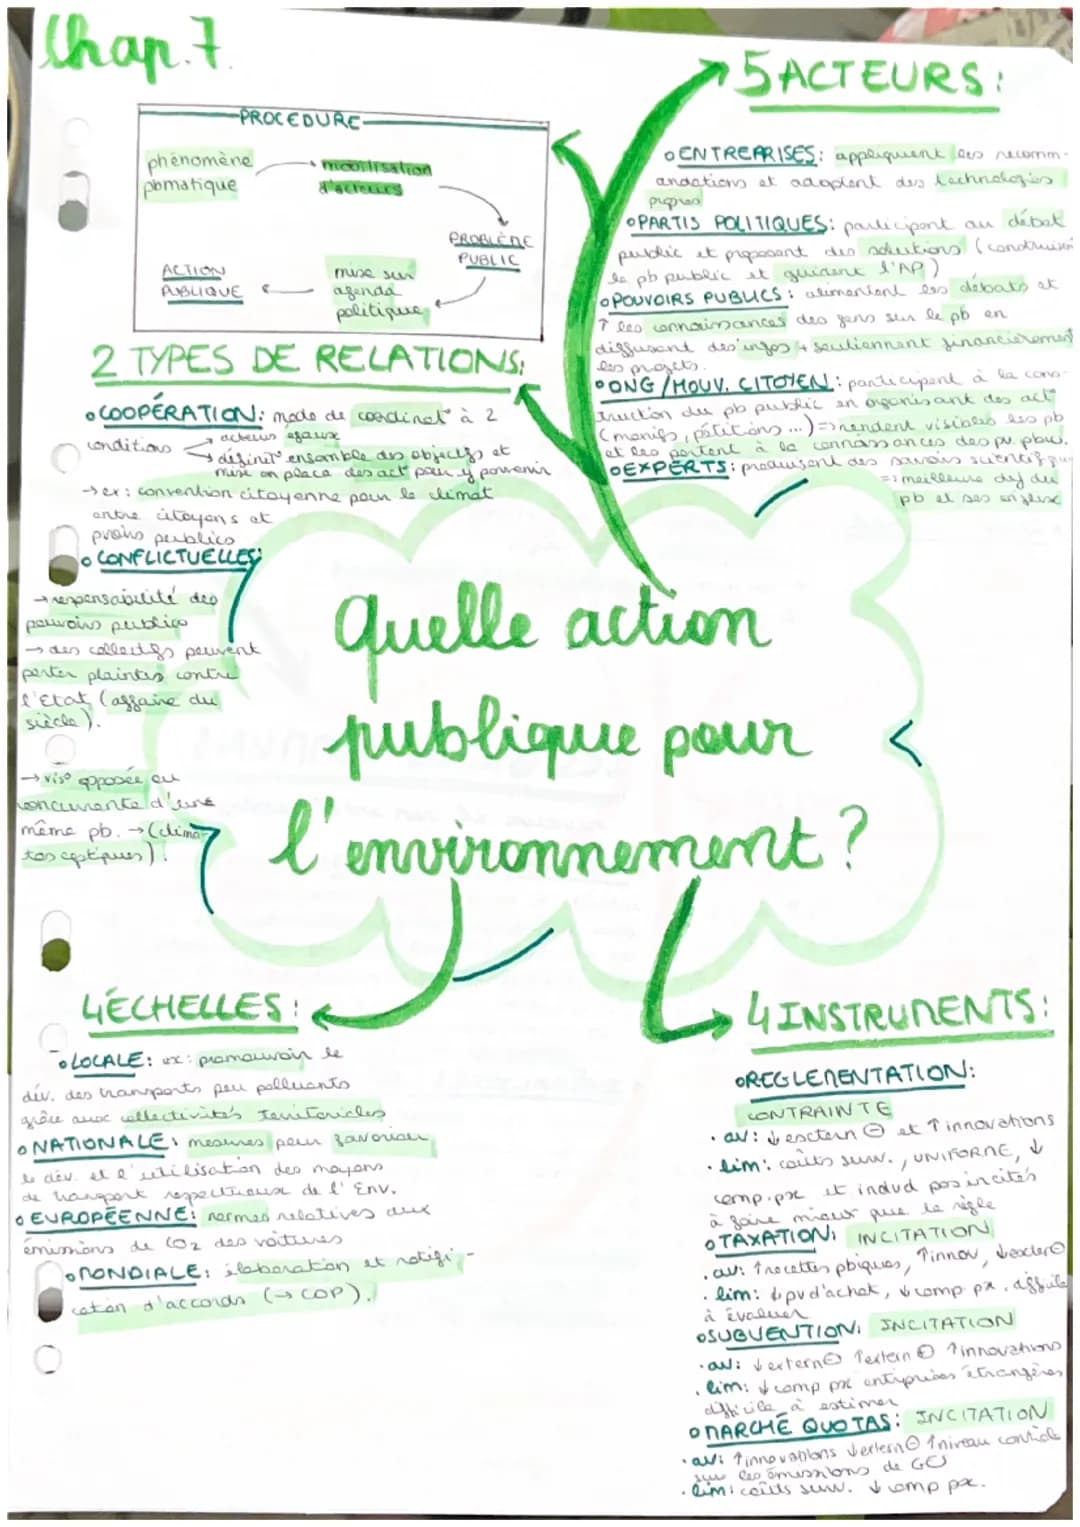 Chap.7.
PROCEDURE
phénomène
pbmatique
mobilisation
d'acteurs
PROBLÈME
PUBLIC
mise sur
agenda
politique
ACTION
PUBLIQUE
5 ACTEURS:
ENTREPRISES: appliquent les recomm-
andations et adoptent des technologies
propres
PARTIS POLITIQUES: participent au débat
public et proposent des solutions (construisent
le pb public et guident l'AP)
POUVOIRS PUBLICS: alimentent les débats et
↑ les connaissances des gens sur le pb en
diffusant des infos + soutiennent financièrement
les projets.
ONG/MOUV. CITOYEN: participent à la cons-
truction du pb public en organisant des act°
(manifs, pétitions ...) => rendent visibles les pb
et les portent à la connaissances des pv. pbw.
EXPERTS: produisent des savoirs scientifique
=> meilleure def du
pb et ses enjeux
2 TYPES DE RELATIONS:
COOPÉRATION: mode de coordinat° à 2
conditions → acteurs égaux
→ définit° ensemble des objectifs et
mise en place des act° pour y parvenir
→ ex: convention citoyenne pour le climat
entre citoyens et
pvoirs publics
CONFLICTUELLES:
→ responsabilité des
pouvoirs publics
→ des collectifs peuvent
porter plaintes contre
l'Etat (affaire du
siècle).
→ vis° opposée ou
concurrente d'une
même pb. → (clima-
tosceptiques).
Quelle action
publique pour
l'environnement ?
4 ÉCHELLES:
LOCALE: ex: promouvoir le
dév. des transports peu polluants
grâce aux collectivités territoriales
NATIONALE: mesures pour favoriser
le dév. et l'utilisation des moyens
de transport respectueux de l'Env.
EUROPÉENNE: normes relatives aux
émissions de CO2 des voitures
MONDIALE: élaboration et ratifi-
cation d'accords (→ COP).
4 INSTRUMENTS:
REGLEMENTATION:
CONTRAINTE
· av: ↓ extern ⊖ et ↑ innovations
· lim: coûts surv., UNIFORME, ↓
comp.px et indvd pas incités
à faire mieux que la règle
TAXATION: INCITATION
· av: ↑ recettes pbiques, ↑ innov, ↓ exter ⊖
· lim: ↓ pv d'achat, ↓ comp. px. difficile
à évaluer
SUBVENTION: INCITATION
· av: ↓ extern ⊖ ↑ extern ⊕ ↑ innovations
· lim: ↓ comp px entreprises étrangères
difficile à estimer
MARCHÉ QUOTAS: INCITATION
· av: ↑ innovations ↓ extern ⊖ ↑ niveau contrôle
sur les émissions de GES
· lim: coûts surv. ↓ comp px.